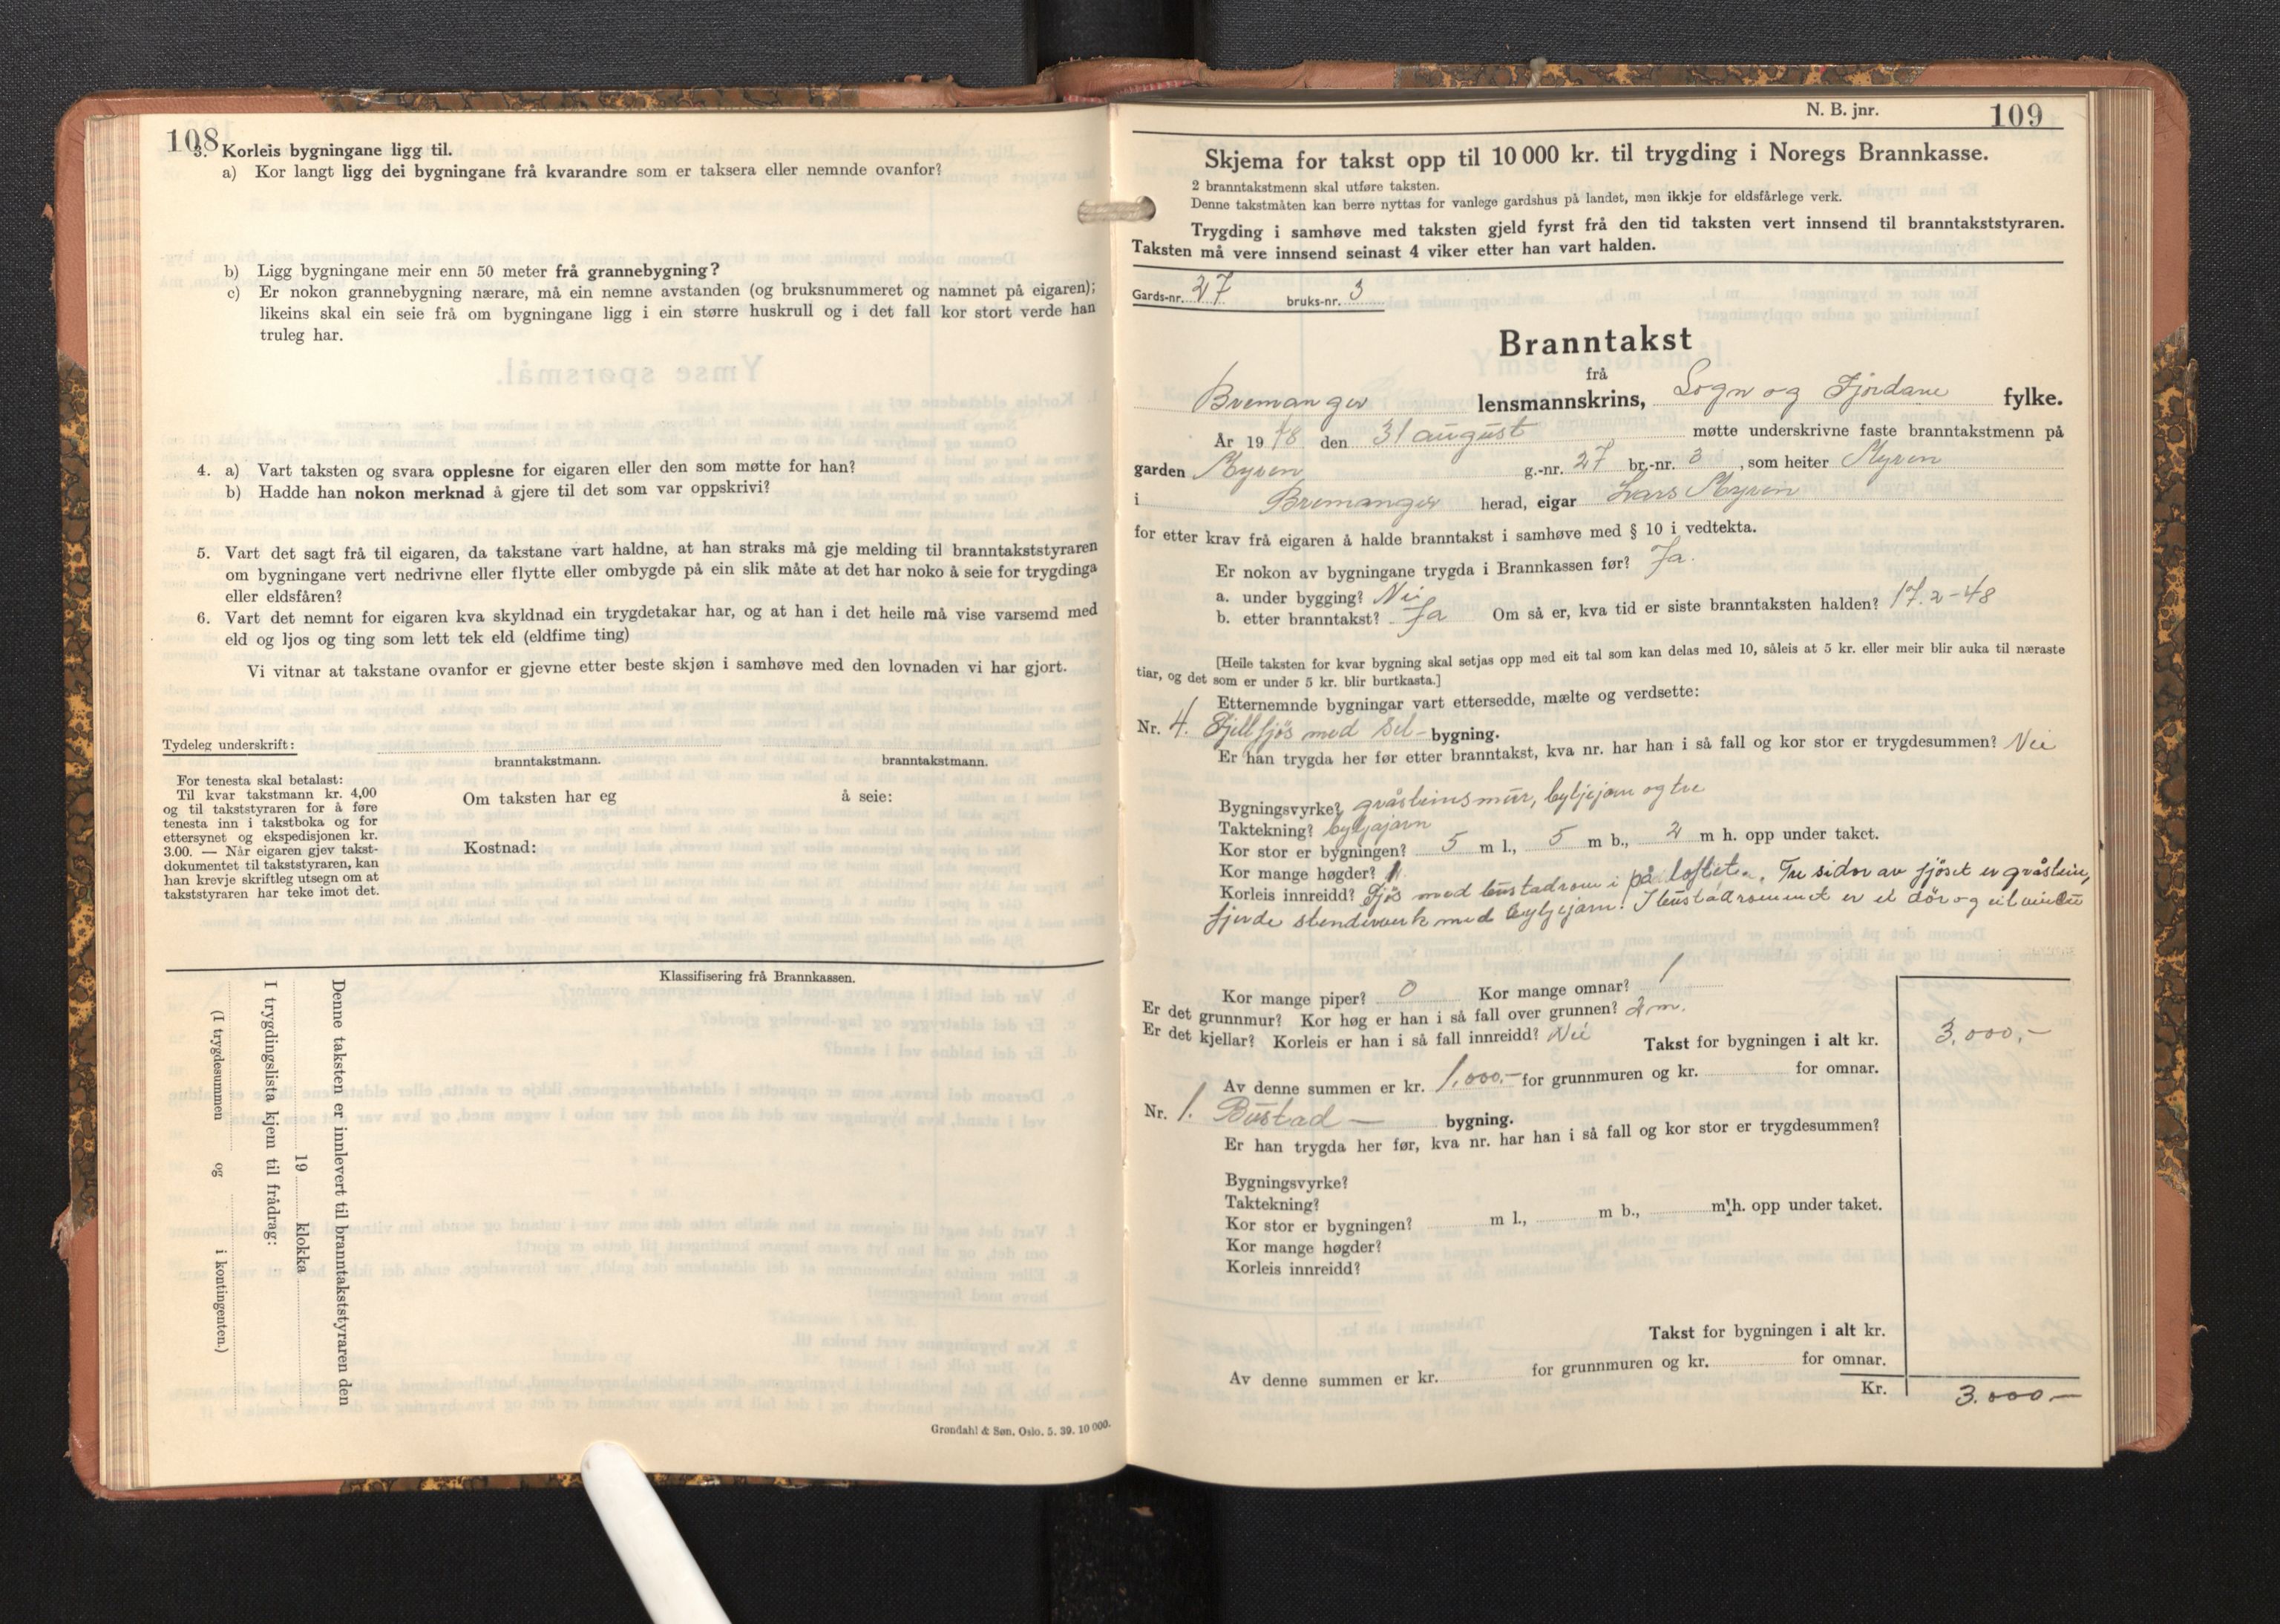 108
3. Korleis bygningane ligg til.
a) Kor langt ligg dei bygningane frå kvarandre som er taksera eller nemnde ovanfor?
b) Ligg bygningane meir enn 50 meter frå grannebygning?
c) Er nokon grannebygning nærare, må ein nemne avstanden (og bruksnummeret og namnet på eigaren);
likeins skal ein seie frå om bygningane ligg i ein større huskrull og i det fall kor stort verde han
truleg har.
4. a) Vart taksten og svara opplesne for eigaren eller den som møtte for han?
b) Hadde han nokon merknad å gjere til det som var oppskrivi?
5. Vart det sagt frå til eigaren, da takstane vart haldne, at han straks må gje melding til branntakststyraren
om bygningane vert nedrivne eller flytte eller ombygde på ein slik måte at det har noko å seie for trygdinga
eller eldsfåren?
6. Vart det nemnt for eigaren kva skyldnad ein trygdetakar har, og at han i det heile må vise varsemd med
eld og ljos og ting som lett tek eld (eldfime ting)
Vi vitnar at takstane ovanfor er gjevne etter beste skjøn i samhøve med den lovnaden vi har gjort.
Tydeleg underskrift:
branntakstmann. branntakstmann.
For tenesta skal betalast:
Til kvar takstmann kr. 4,00
og til takststyraren for å føre
tenesta inn i takstboka og for
ettersynet og ekspedisjonen kr.
3.00. — Når eigaren gjev takst-
dokumentet til takststyraren, kan
han krevje skriftleg utsegn om at
takststyraren har teke imot det.
Om taksten har eg å seie:
Kostnad:
Klassifisering frå Brannkassen.
Denne taksten er innlevert til branntakststyraren den
19 klokka
I trygdingslista kjem til frådrag:
(I trygdesummen og i kontingenten.)
Grøndahl & Søn, Oslo. 5. 39. 10 000.
N. B. jnr. 109
Skjema for takst opp til 10 000 kr. til trygding i Noregs Brannkasse.
2 branntakstmenn skal utføre taksten.
Denne takstmåten kan berre nyttas for vanlege gardshus på landet, men ikkje for eldsfårlege verk.
Trygding i samhøve med taksten gjeld fyrst frå den tid taksten vert innsend til branntakststyraren.
Taksten må vere innsend seinast 4 viker etter han vart halden.
Gards-nr. 27 bruks-nr. 3
Branntakst
frå
Bremanger lensmannskrins, Sogn og Fjordane fylke.
År 1948 den 31 august møtte underskrivne faste branntakstmenn på
garden Myren g.-nr. 27 br.-nr. 3, som heiter Myren
i Bremanger herad, eigar Lars Myren
for etter krav frå eigaren å halde branntakst i samhøve med § 10 i vedtekta.
Er nokon av bygningane trygda i Brannkassen før? Ja.
a. under bygging? Nei
b. etter branntakst? Ja Om så er, kva tid er siste branntaksten halden? 17.2-48
[Heile taksten for kvar bygning skal setjas opp med eit tal som kan delas med 10, såleis at 5 kr. eller meir blir auka til næraste
tiar, og det som er under 5 kr. blir burtkasta.]
Etternemnde bygningar vart ettersedde, mælte og verdsette:
Nr. 4. Fjellfjös med Sel-bygning.
Er han trygda her før etter branntakst, kva nr. har han i så fall og kor stor er trygdesummen? Nei
Bygningsvyrke? gråsteinsmur, bylgjejarn og tre
Taktekning? bylgjajarn
Kor stor er bygningen? 5 m l., 5 m b., 2 m h. opp under taket.
Kor mange høgder? 1
Korleis innreidd? Fjös med bustadrom i på loftet. Tre sidor av fjöset er gråstein,
fjerde stenderverk med bylgjejarn. I bustadrommet er ei dör og eit vindu
Kor mange piper? 0 Kor mange omnar? 1
Er det grunnmur? Kor høg er han i så fall over grunnen? 2 m.
Er det kjellar? Korleis er han i så fall innreidd? Nei Takst for bygningen i alt kr. 3.000,-
Av denne summen er kr. 1.000,- for grunnmuren og kr. for omnar.
Nr. 1. Bustad — bygning.
Er han trygda her før, kva nr. har han i så fall og kor stor er trygdesummen?
Bygningsvyrke?
Taktekning?
Kor stor er bygningen? m l., m b., m h. opp under taket.
Kor mange høgder?
Korleis innreidd?
Takst for bygningen i alt kr.
Av denne summen er kr. for grunnmuren og kr. for omnar.
Kr. 3.000,-